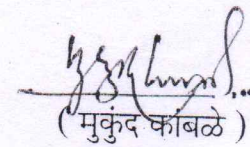 ( मुकुंद कांबळे )